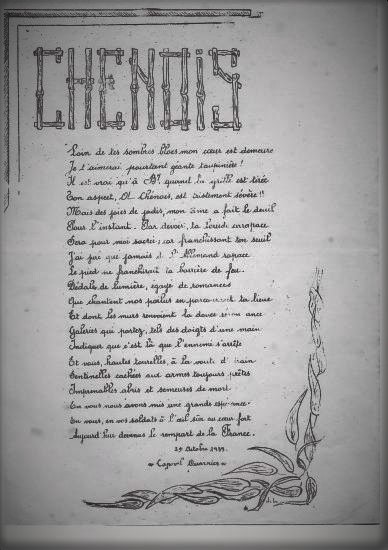 CHENOIS
Loin de tes sombres blocs mon cœur est demeuré
Je t'aimerai pourtant géante taupinière !
Il est vrai qu'à la griffe est tirée
Ton aspect, Ô Chénois, est tristement sévère !!
Mais des joies de jadis, mon âme a fait le deuil
Pour l'instant. Ta lourde carapace
Sera pour moi sacrée : car franchissant ton seuil
J'ai juré que jamais l'Allemand rapace
Le pied ne franchirait la barrière de feu.
Dédale de lumière, égayé de romances
Que chantent nos poilus en parcourant la lieue
Et dont les murs renvoient la douce
Galeries qui partez, tels des doigts d'une main
Indiquer que c'est là que l'ennemi s'arrête
Et vous, hautes tourelles, à la voûte d'airain
Sentinelles cachées aux armes toujours prêtes
Imprenables abris et semeuses de mort.
En vous nous avons mis une grande espérance
En vous, en vos soldats à l'œil sûr au cœur fort
Aujourd'hui devenus le rempart de la France.
29 Octobre 1939.
« Caporal »